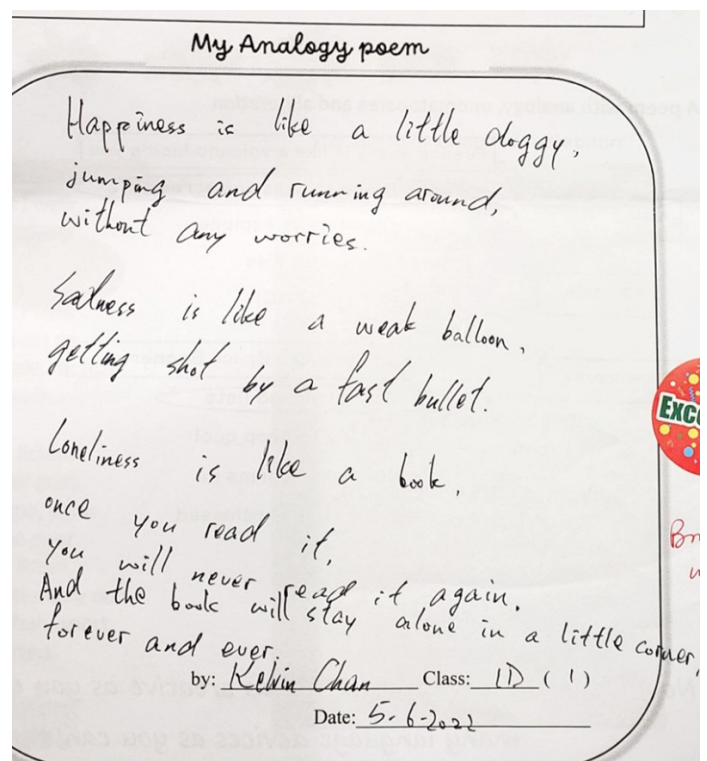 My Analogy poem
Happiness is like a little doggy,
jumping and running around,
without any worries.
Sadness is like a weak balloon,
getting shot by a fast bullet.
Loneliness is like a book,
once you read it,
you will never read it again.
And the book will stay alone in a little corner,
forever and ever.
by: Kelvin Chan Class: 1D (1)
Date: 5-6-2022